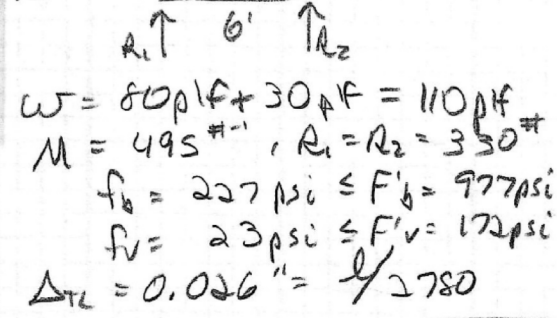 R₁↑ 6' ↑R₂
W = 80plf + 30plf = 110plf
M = 495#-', R₁ = R₂ = 330#
fb = 227 psi ≤ F'b = 977psi
fv = 23psi ≤ F'v = 172psi
ΔTL = 0.026" = l/2780